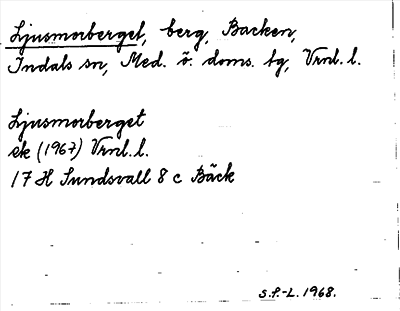 Ljusmorberget, berg, Backen,
Indals sn, Med. ö. doms. tg, Vrnl. l.
Ljusmorberget
ek (1967) Vrnl. l.
17 H Sundsvall 8 c Bäck
S.F.-L. 1968.